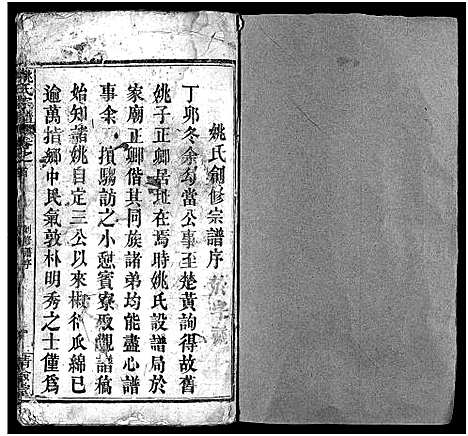 姚氏創修宗譜序
丁卯冬余勾當公事至楚黃詢得故舊
姚子正卿居址在焉時姚氏設譜局於
家廟正卿偕其同族諸弟均能盡心譜
事余一撗驺訪之小憩賓寮取觀譜稿
始知諸姚自定三公以來椒衍瓜綿已
逾萬指鄉中民氣敦朴明秀之士僅為
姚氏宗譜
卷之首
創修譜序